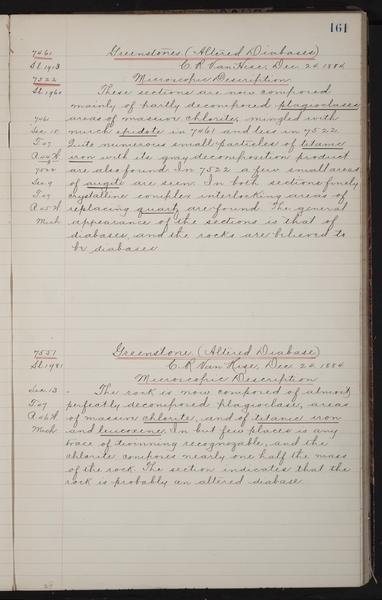 161
7461 Greenstones (Altered Diabases)
Sl. 1913 C. R. Van Hise, Dec. 24, 1884
7522 Microscopic Description.
Sl. 1960 These sections are now composed
mainly of partly decomposed plagioclases
7461 areas of massive chlorite, mingled with
Sec. 15 much epidote in 7461 and less in 7522.
T. 47 Quite numerous small particles of titanic
R. 46 W iron with its gray decomposition product
7522 are also found. In 7522 a few small areas
Sec. 9 of augite are seen. In both sections finely
T. 47 crystalline complex interlocking areas of
R. 45 W replacing quartz are found. The general
Mich. appearance of the sections is that of
diabases, and the rocks are believed to
be diabases.
7551 Greenstone (Altered Diabase)
Sl. 1981 C. R. Van Hise, Dec. 24, 1884
Microscopic Description
Sec. 13 The rock is now composed of almost
T. 47 perfectly decomposed plagioclase, areas
R. 46 W of massive chlorite, and of titanic iron
Mich. and leucoxene. In but few places is any
trace of twinning recognizable, and the
chlorite composes nearly one half the mass
of the rock. The section indicates that the
rock is probably an altered diabase.